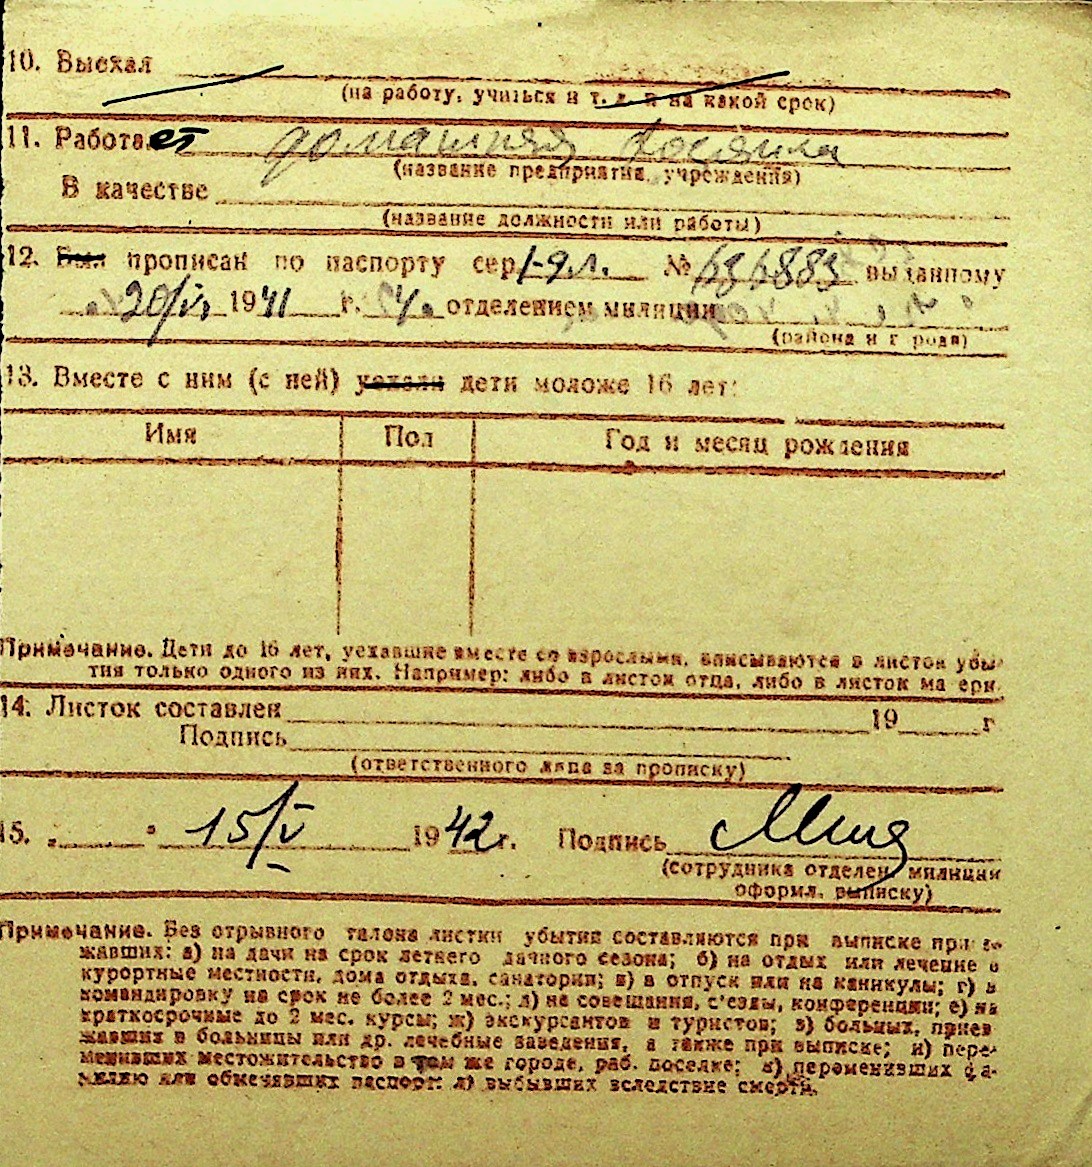 10. Выехал
(на работу, учиться и т. д. и на какой срок)
11. Работает домашняя хозяйка
(название предприятия, учреждения)
В качестве
(название должности или работы)
12. Был прописан по паспорту сер. № 636883 выданному
20/VI 1941 г. отделением милиции
(района и г рода)
13. Вместе с ним (с ней) уехали дети моложе 16 лет:
Имя Пол Год и месяц рождения
Примечание. Дети до 16 лет, уехавшие вместе со взрослыми, вписываются в листок убы-
тия только одного из них. Например: либо в листок отца, либо в листок ма ери.
14. Листок составлен 19 г
Подпись
(ответственного лица за прописку)
15. " " 15/V 1942 г. Подпись
(сотрудника отделен. милиции
оформл. выписку)
Примечание. Без отрывного талона листки убытия составляются при выписке прие-
жавших: а) на дачи на срок летнего дачного сезона; б) на отдых или лечение в
курортные местности, дома отдыха, санатории; в) в отпуск или на каникулы; г) в
командировку на срок не более 2 мес.; д) на совещания, с'езды, конференции; е) на
краткосрочные до 2 мес. курсы; ж) экскурсантов и туристов; з) больных, приев
жавших в больницы или др. лечебные заведения, а также при выписке; и) пере-
менивших местожительство в том же городе, раб. поселке; к) переменивших фа-
милию или обменявших паспорт; л) выбывших вследствие смерти.